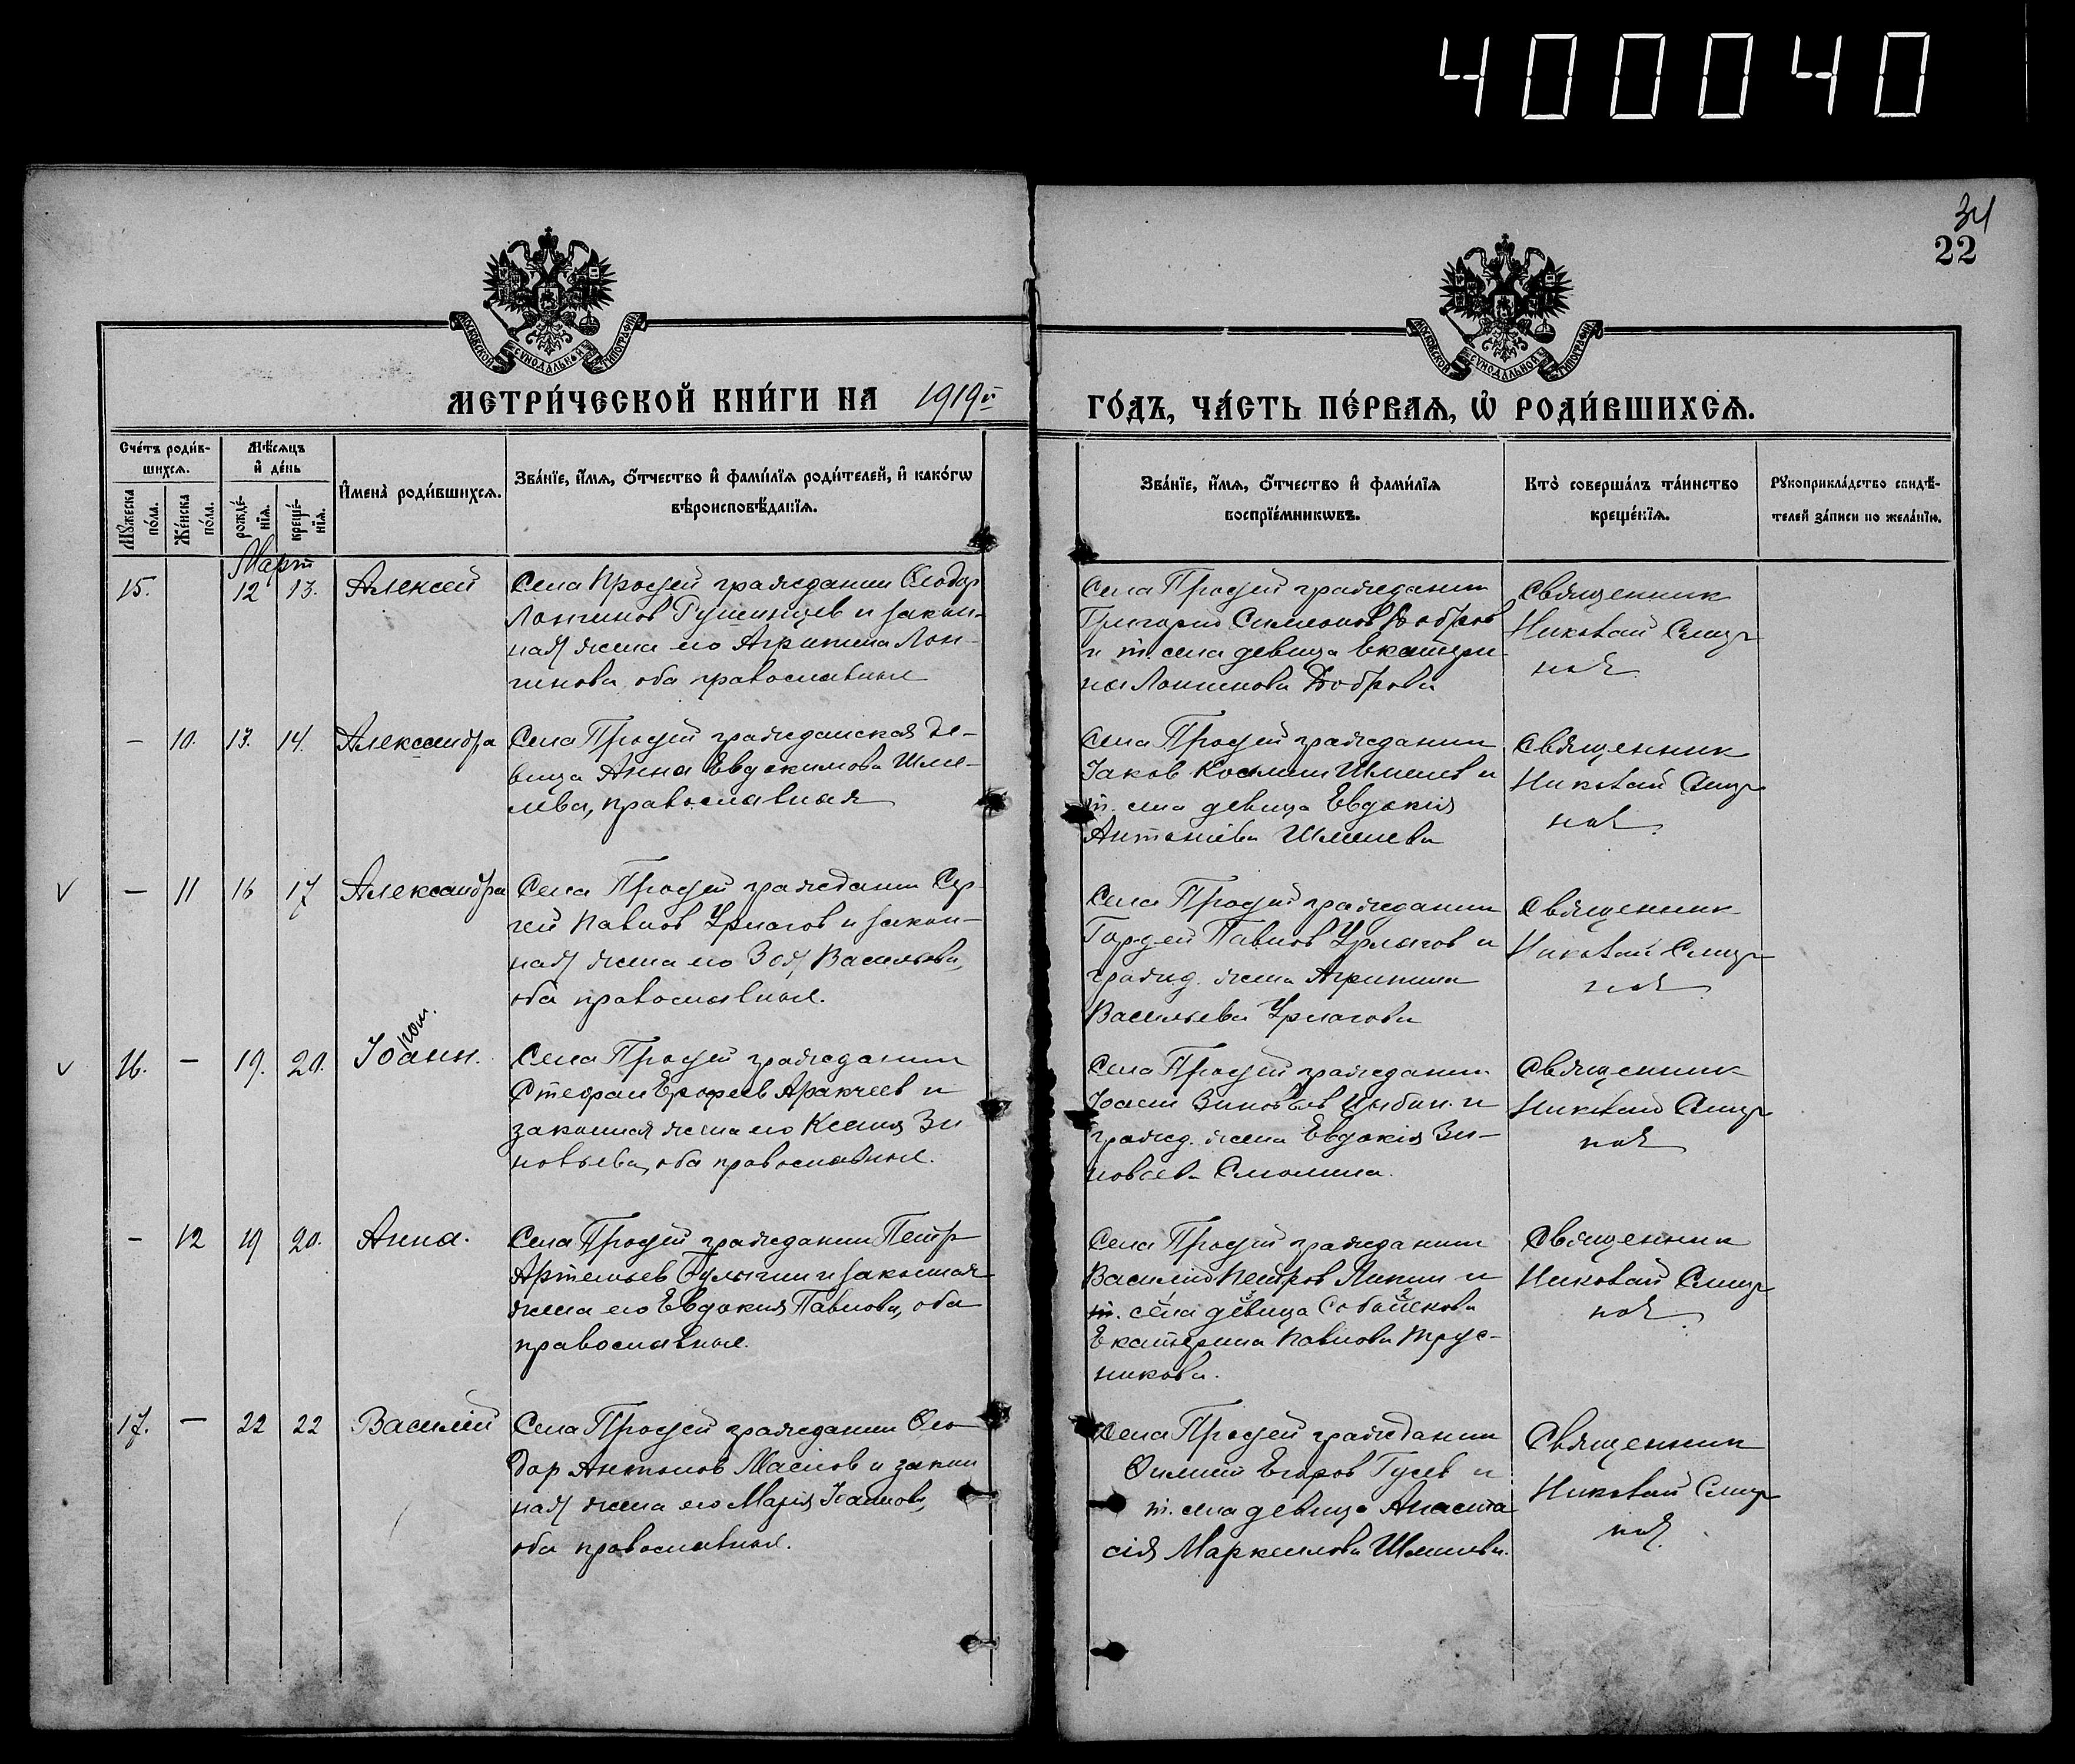 400040
34
22
МОСКОВСКОЙ СѴНОДАЛЬНОЙ ТИПОГРАФІИ
МОСКОВСКОЙ СѴНОДАЛЬНОЙ ТИПОГРАФІИ
МЕТРИ́ЧЕСКОЙ КНИ́ГИ НА 1919 г.
ГО́ДЪ, ЧА́СТЬ ПЕ́РВАЯ, Ѡ РОДИ́ВШИХСЯ.
Сче́тъ роди́в-
шихся.
Мѣ́сяцъ
и҆ де́нь
Мꙋ́жеска по́ла.
Же́нска по́ла.
рожде́-нїѧ.
креще́-нїѧ.
И҆мена̀ роди́вшихся.
Зва́нїе, и҆́мя, ѻ҆́тчество и҆ фами́лїя роди́телей, и҆ како́гѡ
вѣроисповѣ́данїя.
Зва́нїе, и҆́мя, ѻ҆́тчество и҆ фами́лїя
воспрїе́мникѡвъ.
Кто̀ соверша́лъ та́инство
креще́нїя.
Рꙋкоприкла́дство свидѣ́-
телей за́писи по жела́нїю.
Март
15. 12 13. Алексей
Села Просцей гражданин Феодор
Лонгинов и закон-
ная жена его Агрипина Лон-
гинова, оба православные
Села Просцей гражданин
Григорий Симеонов Добров
и т. села девица Екатери-
на Лонгинова Доброва
Священник
Николай Смир-
нов
— 10. 13. 14. Александра
Села Просцей гражданская де-
вица Анна Евдокимова Шме-
лева, православная
Села Просцей гражданин
Іаков Космин Шмелев и
т. села девица Евдокия
Антониева Шмелева
Священник
Николай Смир-
нов.
V — 11 16 17 Александра
Села Просцей гражданин Сер-
гей Павлов Урлапов и закон-
ная жена его Зоя Васильева,
оба православные.
Села Просцей гражданин
Гордей Павлов Урлапов и
гражд. жена Агрипина
Васильева Урлапова
Священник
Николай Смир-
нов
V 16. — 19. 20. Іоанн.
Села Просцей гражданин
Стефан Ерофеев Аракчеев и
законная жена его Ксения Зи-
новьева, оба православные.
Села Просцей гражданин
Іоанн Зиновьев Цыбин и
гражд. жена Евдокія Зи-
новьева Смолина.
Священник
Николай Смир-
нов
— 12 19 20. Анна.
Села Просцей гражданин Петр
Артемьев Булыгин и законная
жена его Евдокия Павлова, оба
православные.
Села Просцей гражданин
Василий Петров Ликин и
т. села девица
Екатерина Павлова Трус-
никова.
Священник
Николай Смир-
нов.
17. — 22 22 Василий
Села Просцей гражданин Фео-
дор Антонов Маслов и закон-
ная жена его Марія Іоаннова,
оба православные.
Села Просцей гражданин
Филипп Егоров Гусев и
т. села девица Анаста-
сія Маркеллова Шмелева.
Священник
Николай Смир-
нов.